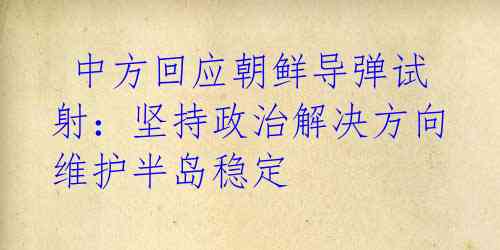 中方回应朝鲜导弹试
射：坚持政治解决方向
维护半岛稳定